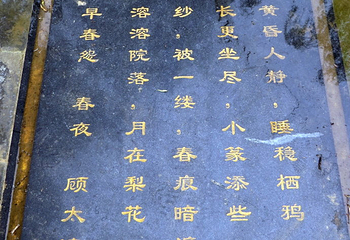 黄昏人静,睡稳栖鸦
长更坐尽,小篆添些
纱,被一缕,春痕暗
溶溶院落,月在梨花
早春怨 春夜 顾太